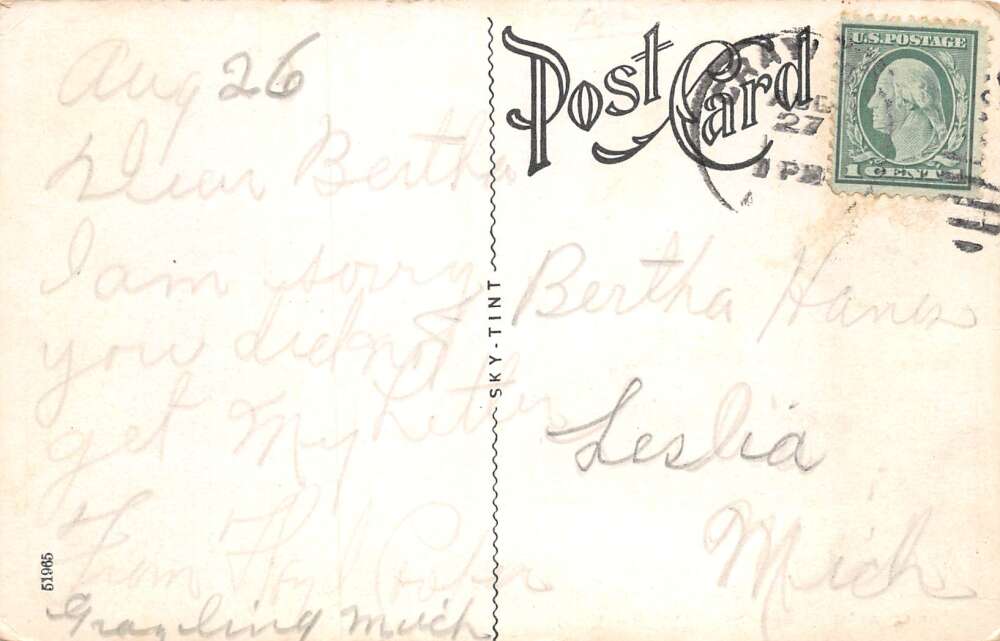 Aug 26
Dear Bertha
I am sorry
you did not
get My Letter
From
Grayling Mich
51965
SKY-TINT
Post Card
AUG
27
1 PM
U.S. POSTAGE
1 CENT
Bertha Hanes
Leslia
Mich